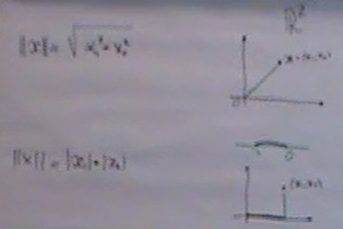 ℝ²
||x|| = √(x₁² + x₂²)
x = (x₁, x₂)
0
||x|| = |x₁| + |x₂|
(x₁, x₂)